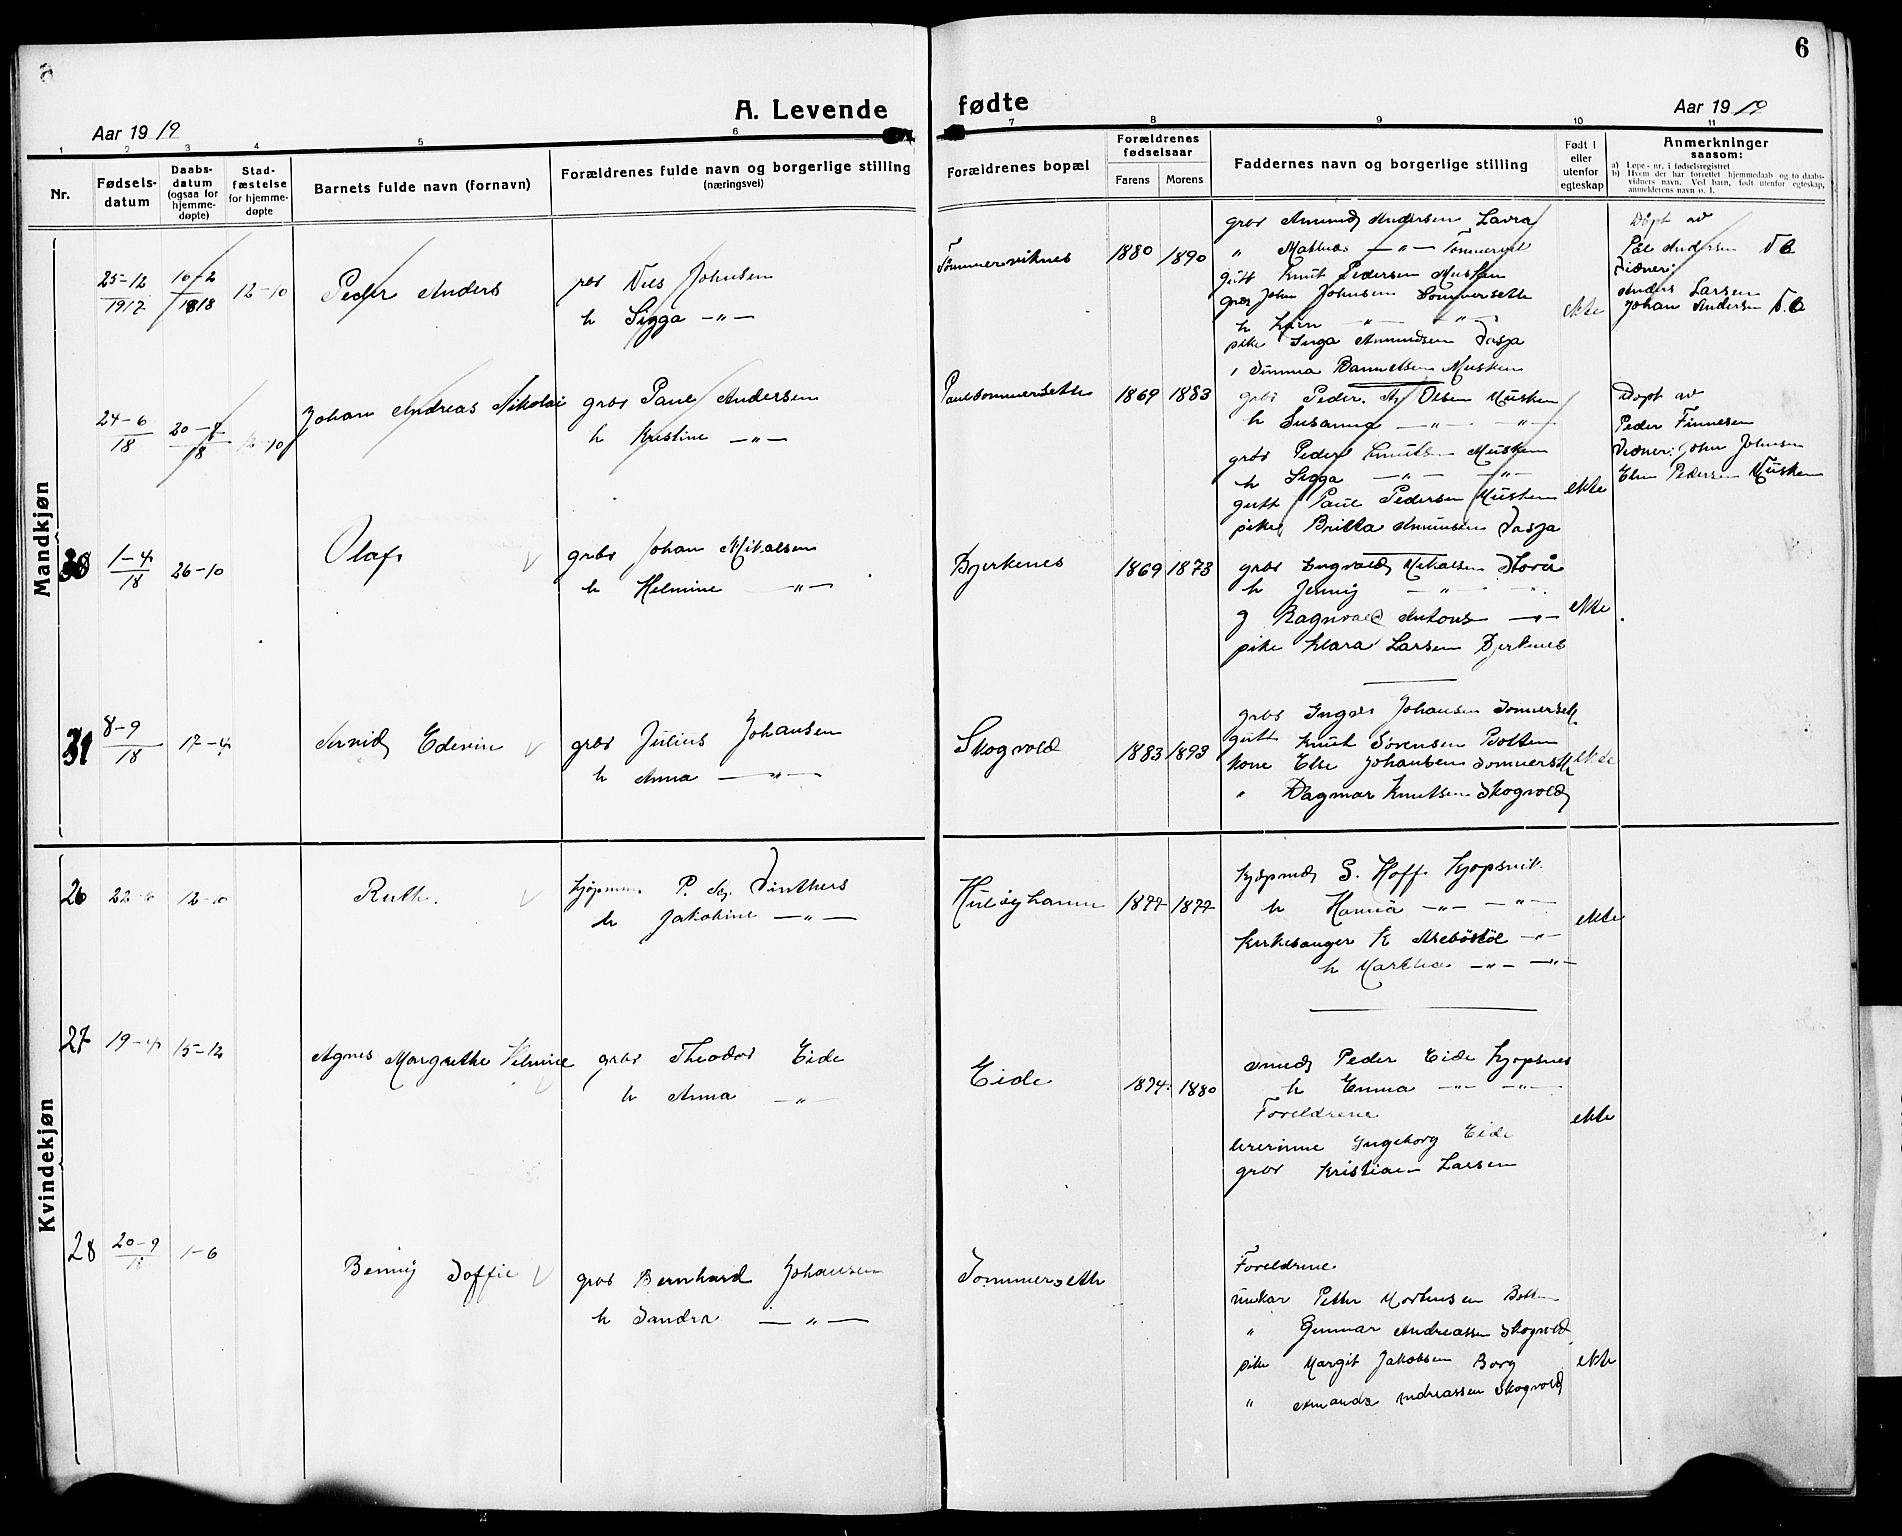 6
A. Levende fødte
Aar 1919
Aar 1919
1 2 3 4 5 6 7 8 9 10 11
Nr.
Fødsels-datum
Daabs-datum (ogsaa for hjemme-døpte)
Stad-fæstelse for hjemme-døpte
Barnets fulde navn (fornavn)
Forældrenes fulde navn og borgerlige stilling
(næringsvei)
Forældrenes bopæl
Forældrenes fødselsaar
Farens
Morens
Faddernes navn og borgerlige stilling
Født i eller utenfor egteskap
Anmerkninger
saasom:
a) Løpe-nr. i fødselsregistret
b) Hvem der har forrettet hjemmedaab og to daabs-vidners navn. Ved barn, født utenfor egteskap, anmelderens navn o. l.
Mandkjøn
25-12 1917
16-2 1918
12-10
Peder Anders
grbr Nils Johnsen
h Sigga -"-
Tømmerviknes
1880 1890
grbr Amund Andersen Lavra
" Mathias -"- Tømmervik
gutt Knut Pedersen Musken
grbr John Johnsen Sommersette
h Karn -"- -"-
pike Inga Amundsen Dasja
ekte
Døpt av
Pål Andersen
Vidner:
Anders Larsen
Johan Andersen
24-6 18
20-8 18
12-10
Johan Andreas Nikolai
grbr Paul Andersen
h Kristine -"-
Paulsommersette
1869 1883
grbr Peder A. Olsen Musken
h Susanna -"- -"-
grbr Peder Knutsen Musken
h Sigga -"- -"-
gutt Paul Pedersen Musken
pike Britta Amundsen Dasja
ekte
Døpt av
Peder Finnesen
Vidner: John Johnsen
Elen Pedersen Musken
30
1-4 18
26-10
Olaf
grbr Johan Mikalsen
h Helmine -"-
Bjerkenes
1869 1873
grbr Ingvald Mikalsen Storå
h Jenny -"-
g Ragnvald Antons -"-
pike Klara Larsen Bjerknes
ekte
31
8-9 18
17-4
Arvid Edevin
grbr Julius Johansen
h Anna -"-
Skogvold
1883 1893
grbr Johansen Sommerset
gutt Knut Sørensen Botten
kone Else Johansen Sommerset
" Dagmar Knutsen Skogvold
ekte
Kvindekjøn
26
22-6
12-10
Ruth.
kjøpmann P. Vinthers
h Jakobine -"-
Huløyhamn
1877 1877
kjøpmd S. Hoff Kjøpsvik
h Hanna -"- -"-
Kirkesanger K -"-
h Martha -"- -"-
ekte
27
19-4
15-12
Agnes Margrethe Helmine
grbr Theodor Eide
h Anna -"-
Eide
1874 1880
smed Peder Eide Kjøpsnes
h Emma -"- -"-
Foreldrene
lærerinne Ingeborg Eide
grbr Kristian Larsen
ekte
28
20-9 18
1-6
Benny Soffie
grbr Bernhard Johansen
h Sandra -"-
Sommerseth
Foreldrene
unkar Petter Mortensen Botten
" Gunnar Andreassen Skogvold
pike Margit Jakobsen Borg
" Amanda Andreassen Skogvold
ekte